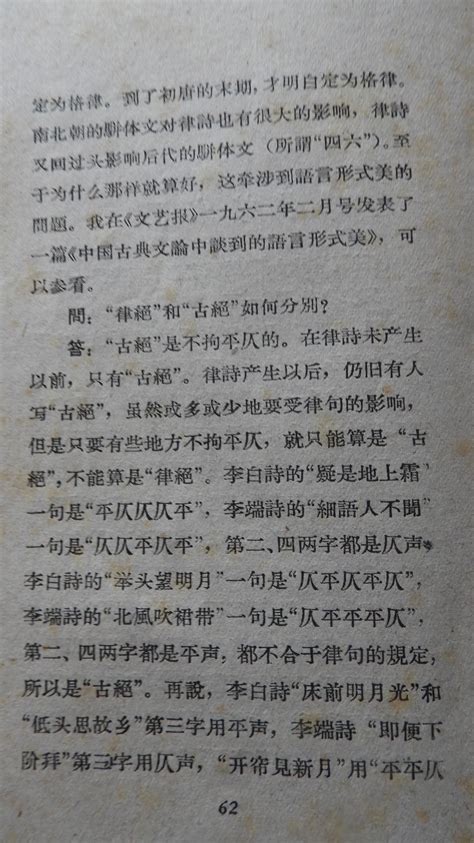 定为格律。到了初唐的末期，才明白定为格律。
南北朝的駢体文对律詩也有很大的影响，律詩
又回过头影响后代的駢体文（所謂“四六”）。至
于为什么那样就算好，这牵涉到語言形式美的
問題。我在《文艺报》一九六二年二月号发表了
一篇《中国古典文論中談到的語言形式美》，可
以参看。
問：“律絕”和“古絕”如何分別？
答：“古絕”是不拘平仄的。在律詩未产生
以前，只有“古絕”。律詩产生以后，仍旧有人
写“古絕”，虽然或多或少地要受律句的影响，
但是只要有些地方不拘平仄，就只能算是“古
絕”，不能算是“律絕”。李白詩的“疑是地上霜”
一句是“平仄仄仄平”，李端詩的“細語人不聞”
一句是“仄仄平仄平”，第二、四两字都是仄声，
李白詩的“举头望明月”一句是“仄平仄平仄”，
李端詩的“北風吹裙带”一句是“仄平平平仄”，
第二、四两字都是平声，都不合于律句的規定，
所以是“古絕”。再說，李白詩“床前明月光”和
“低头思故乡”第三字用平声，李端詩“即便下
阶拜”第三字用仄声，“开帘見新月”用“平平仄
62